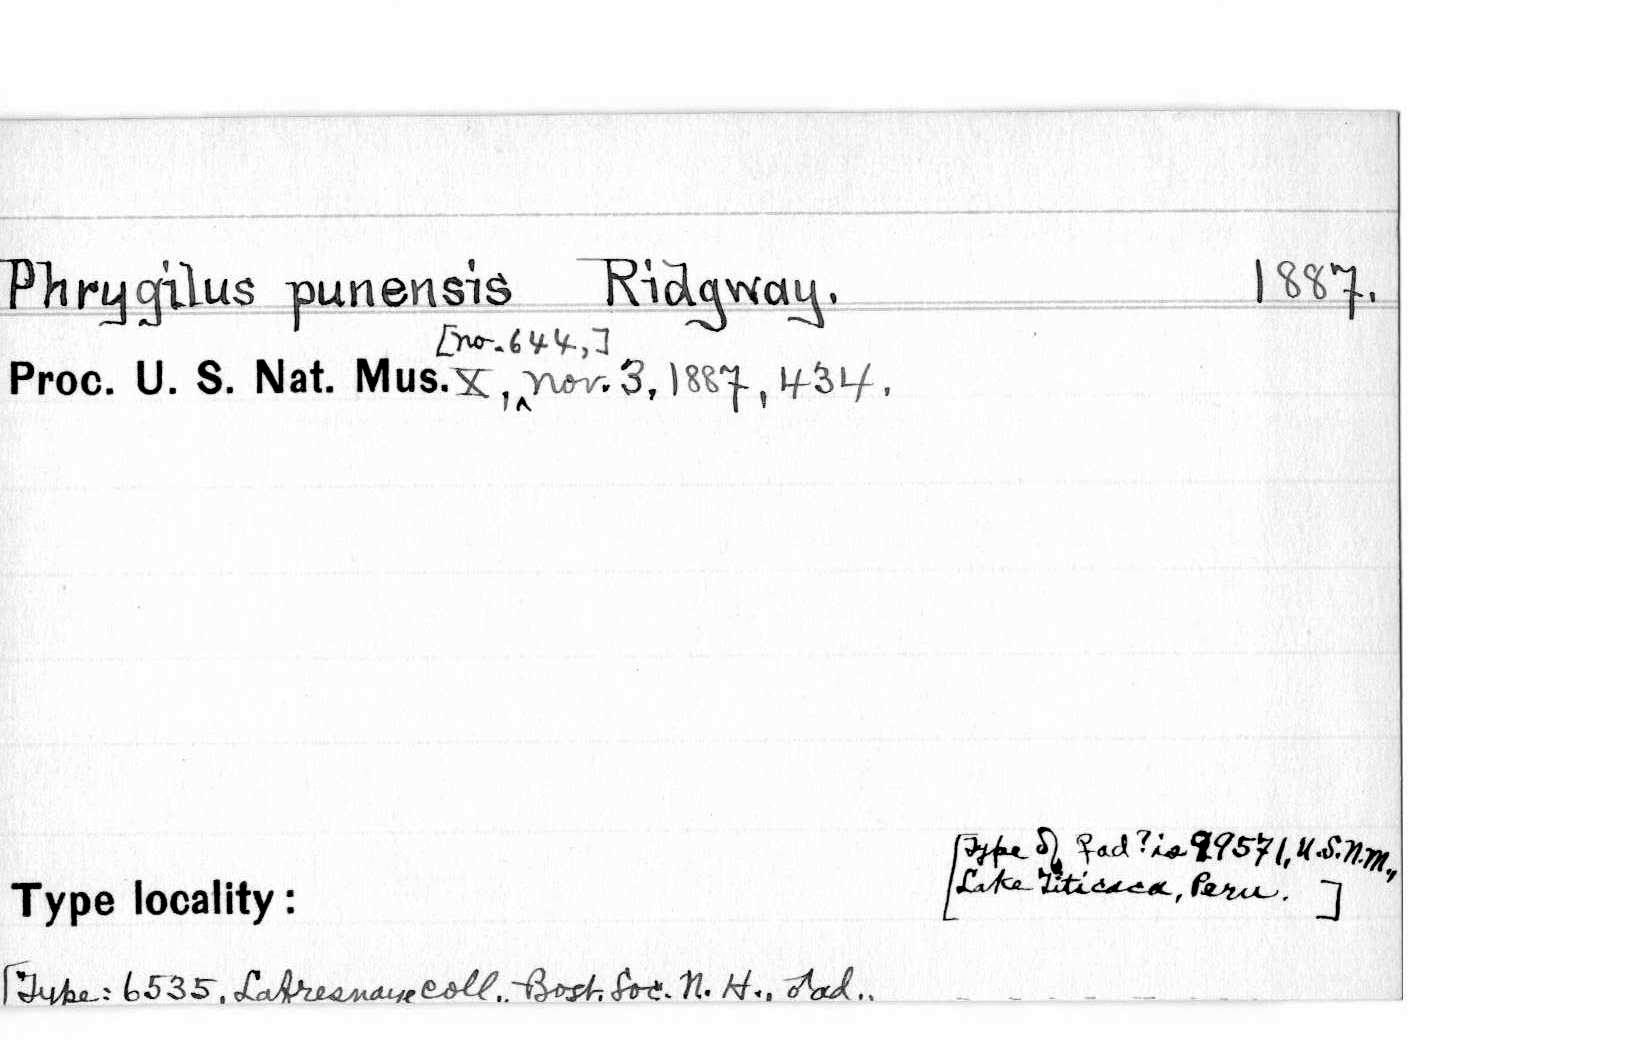 Phrygilus punensis Ridgway. 1887.
[no. 644,]
Proc. U. S. Nat. Mus. X, ‸ Nov. 3, 1887, 434.
[Type of ♀ ad? is 99571, U.S.N.M.,
Lake Titicaca, Peru. ]
Type locality:
[Type: 6535, Lafresnaye coll., Bost. Soc. N. H., ♂ ad.,